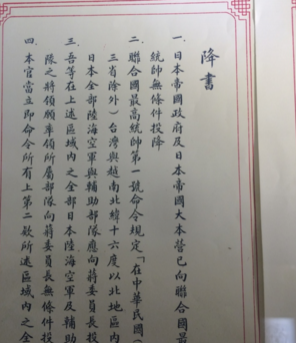 降書
一、日本帝國政府及日本帝國大本營已向聯合國最
統帥無條件投降
二、聯合國最高統帥第一號命令規定「在中華民國(
三省除外)台灣與越南北緯十六度以北地區內
日本全部陸海空軍與輔助部隊應向蔣委員長投
三、吾等在上述區域內之全部日本陸海空軍及輔助
隊之將領願率領所屬部隊向蔣委員長無條件投
四、本官當立即命令所有上第二款所述區域內之全